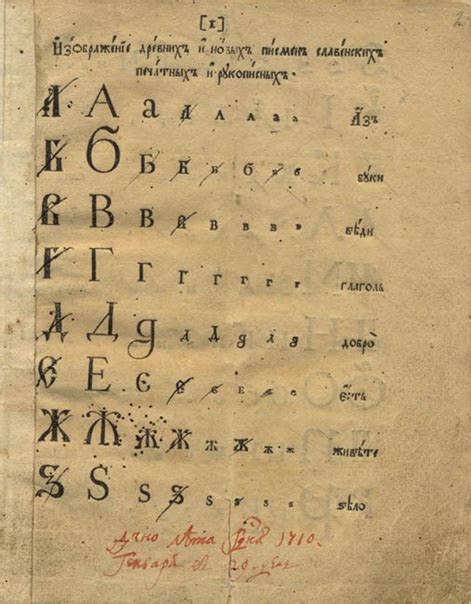 [1]
И҆зѡбраже́нїе дре́внихъ и҆ но́выхъ пи́сменъ славе́нскихъ
печа́тныхъ и҆ рꙋкопи́сныхъ.
А А а а а а а а А҆́зъ
Б Б Б Б Б б б в бꙋ́ки
В В В В В в в в вѣ́ди
Г Г Г Г Г г г г глаго́ль
Д Д д д Д д д д добро̀
Є Е Є є є є є є є҆́сть
Ж Ж Ж Ж Ж Ж ж ж живѣ́те
Ѕ Ѕ Ѕ Ѕ ѕ ѕ ѕ ѕ ѕѣлѡ̀
Дано лѣта 1710.
Генваря 29